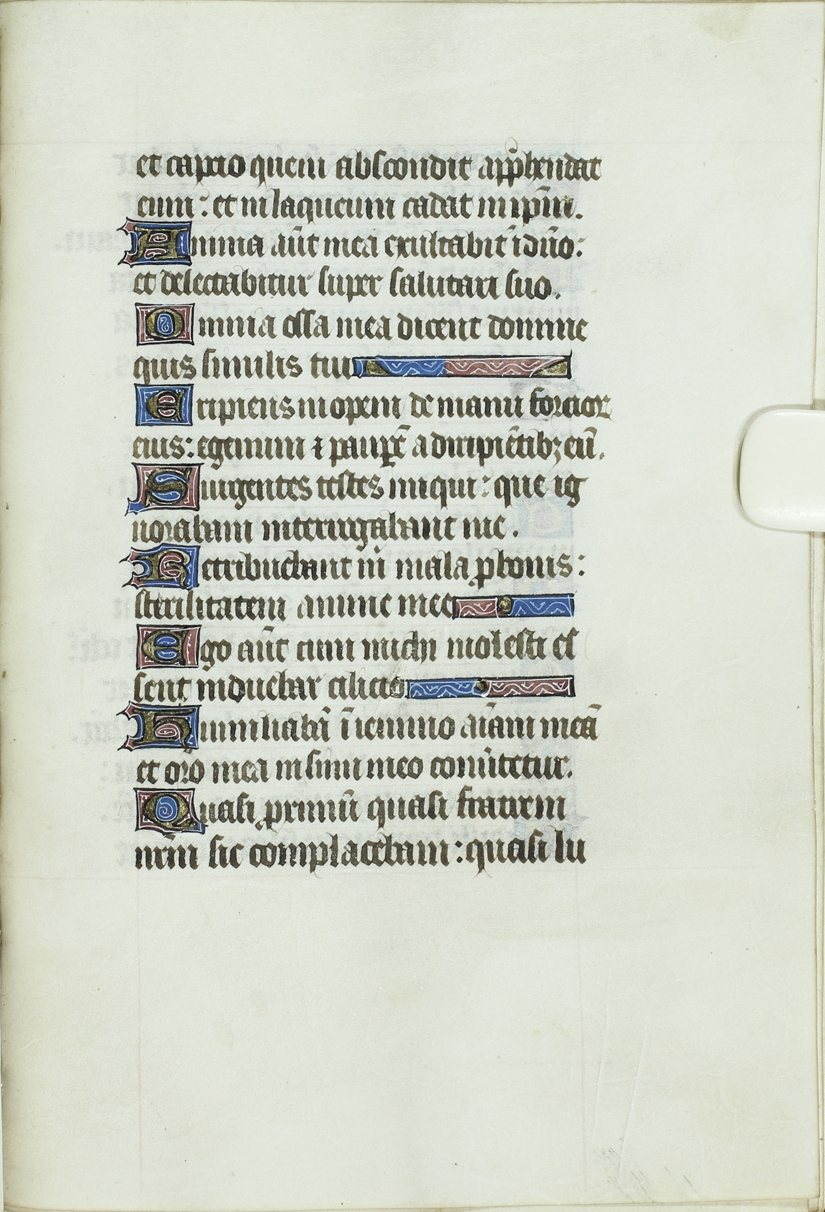 et captio quem abscondit app̄hendat
eum : et in laqueum cadat in ip̄m.
Anima aūt mea exultabit ī dn̄o:
et delectabitur super salutari suo.
Omnia ossa mea dicent domine
quis similis tui
Eripiens inopem de manu forcior
eius: egenum ⁊ paupē a diripiētibꝫ eū.
Surgentes testes iniqui : que ig
norabam interrogabant me.
Retribuebant m̄ mala ꝓ bonis:
sterilitatem anime mee
Ego aūt cum michi molesti es
sent induebar cilicio
Humiliabā ī ieiunio aīam meā
et or̄o mea in sinu meo conūtetur.
Quasi proximū quasi fratrem
nr̄m sic complacebam : quasi lu